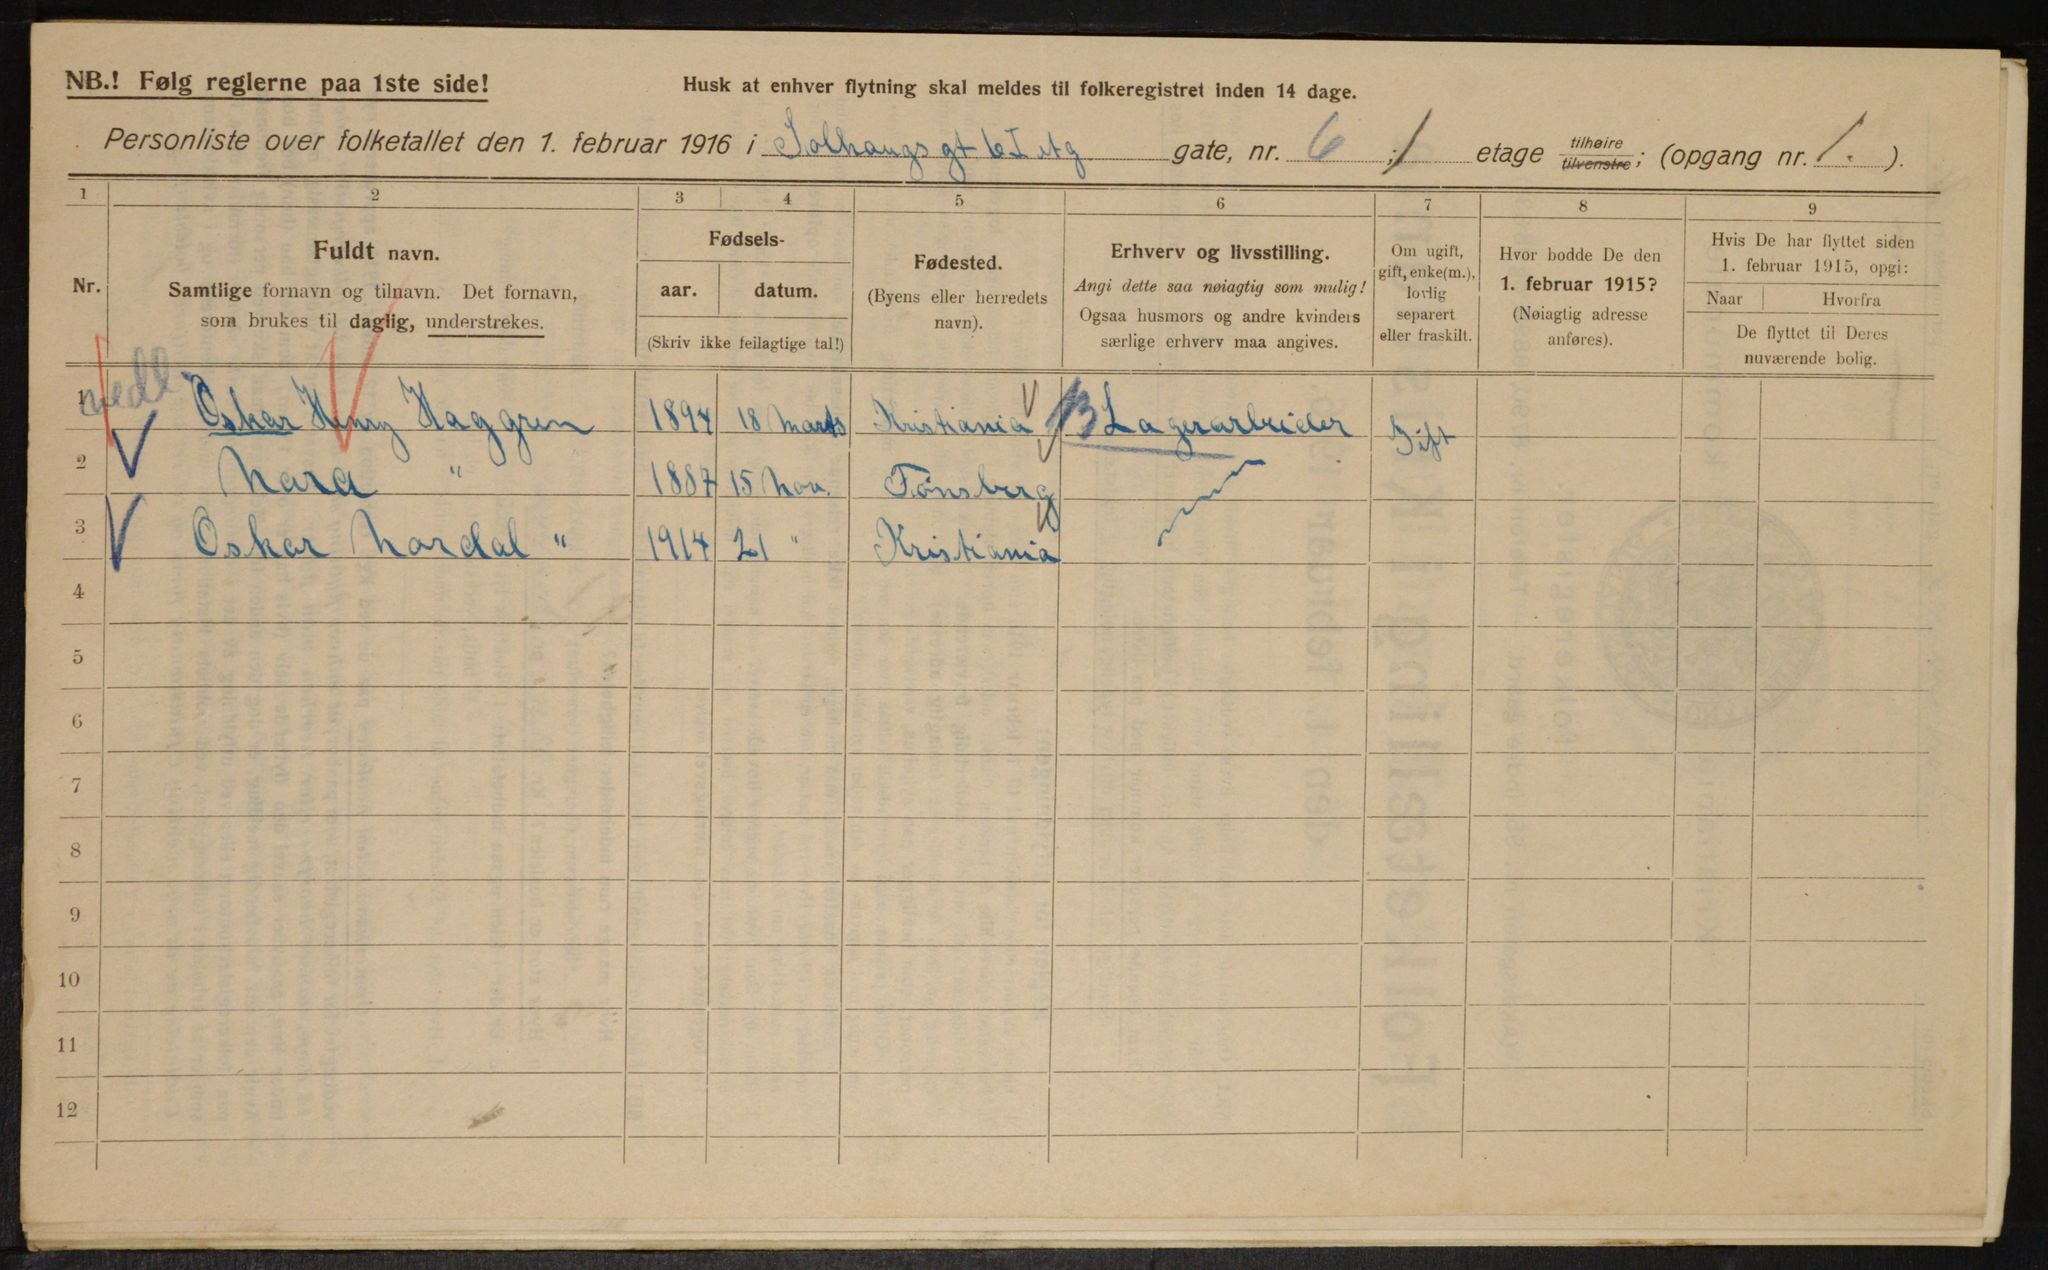 NB.! Følg reglerne paa 1ste side!
Husk at enhver flytning skal meldes til folkeregistret inden 14 dage.
Personliste over folketallet den 1. februar 1916 i Solhaugsgt 6 I etg gate, nr. 6 ; 1 etage tilhøire tilvenstre; (opgang nr. 1. ).
1 2 3 4 5 6 7 8 9
Nr.
Fuldt navn.
Samtlige fornavn og tilnavn. Det fornavn,
som brukes til daglig, understrekes.
Fødsels-
aar. datum.
(Skriv ikke feilagtige tal!)
Fødested.
(Byens eller herredets
navn).
Erhverv og livsstilling.
Angi dette saa nøiagtig som mulig!
Ogsaa husmors og andre kvinders
særlige erhverv maa angives.
Om ugift,
gift, enke(m.),
lovlig
separert
eller fraskilt.
Hvor bodde De den
1. februar 1915?
(Nøiagtig adresse
anføres).
Hvis De har flyttet siden
1. februar 1915, opgi:
Naar Hvorfra
De flyttet til Deres
nuværende bolig.
1 Oskar Henry Haggren 1894 18 Marts Kristiania Lagerarbeider Gift
2 Nara " 1887 15 Nov. Tønsberg
3 Oskar Nordal " 1914 21 " Kristiania
4
5
6
7
8
9
10
11
12